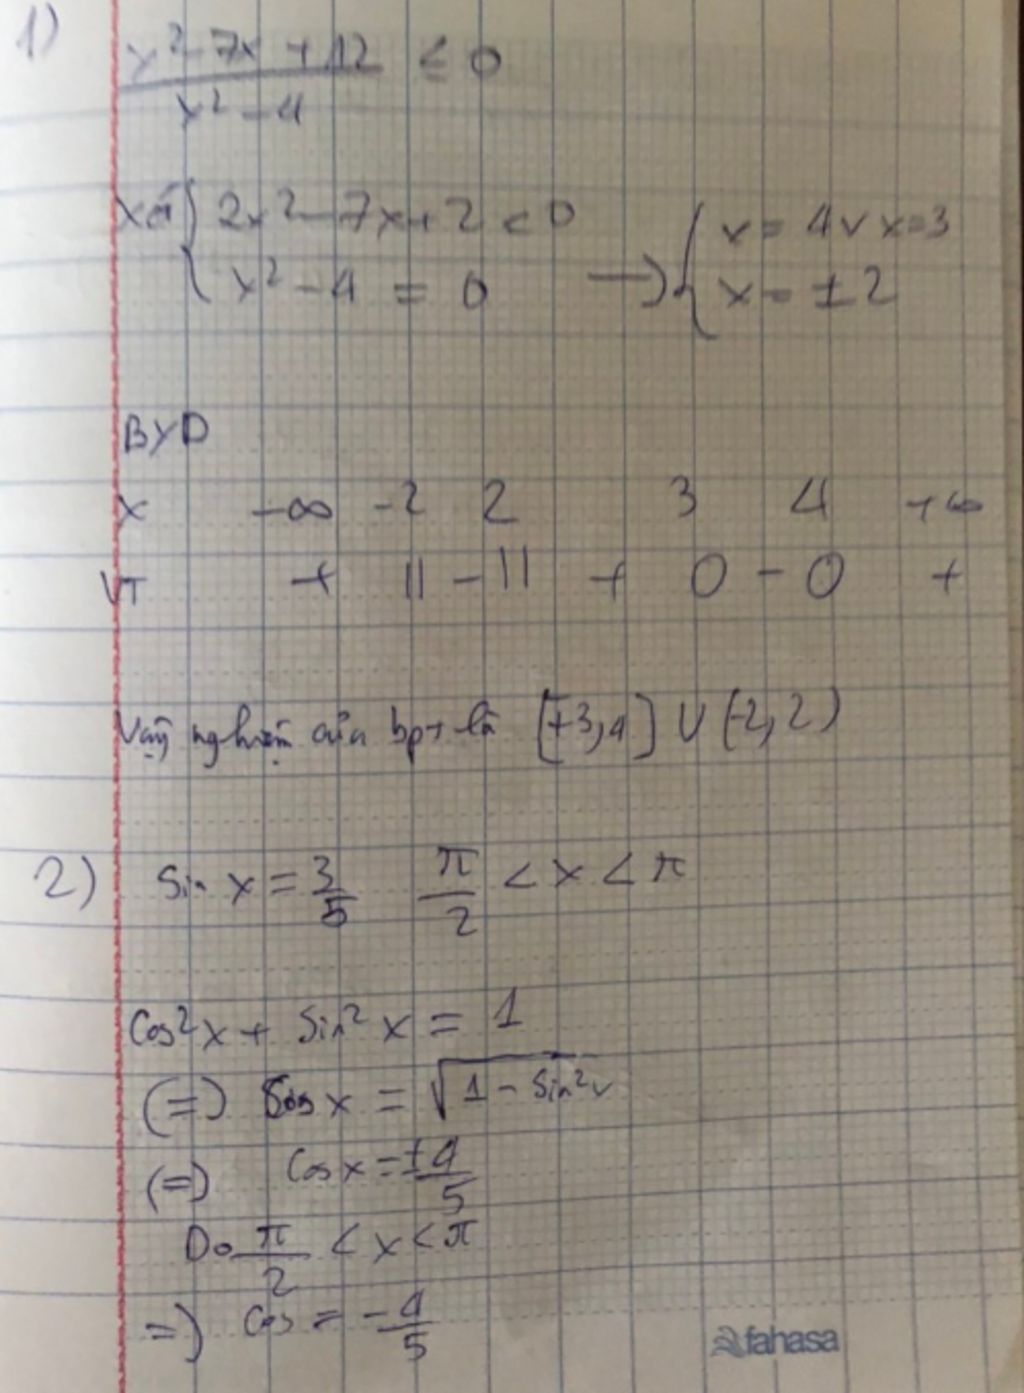 1) x² - 7x + 12 ≤ 0
x² - 4
Xét { 2x² - 7x + 2 < 0 → { x = 4 v x = 3
x² - 4 = 0 x = ±2
BXD
x -∞ -2 2 3 4 +∞
VT + || - || + 0 - 0 +
Vậy nghiệm của bpt là [+3,4] U (-2,2)
2) Sin x = 3/5 π/2 < x < π
Cos²x + Sin²x = 1
(=) Cos x = √1 - Sin²x
(=) Cos x = ±4/5
Do π/2 < x < π
=) Cos = -4/5
fahasa